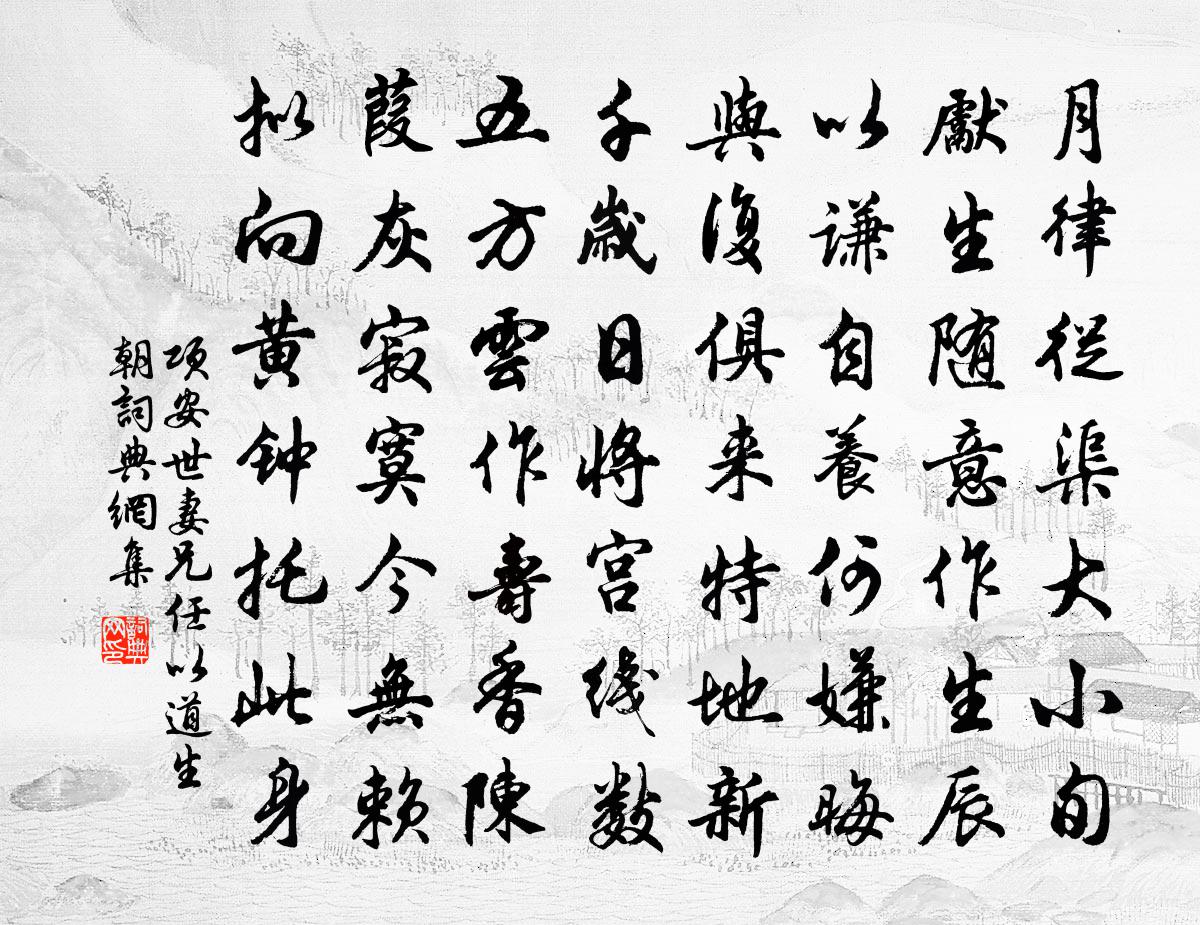 月律從渠大小旬
獻生随意作生辰
以谦自養何嫌晦
與復俱来特地新
千歲日將宫綫数
五方雲作壽香陳
葭灰寂寞今無赖
拟向黄钟托此身
项安世妻兄任以道生
朝詞典網集
詞典网印